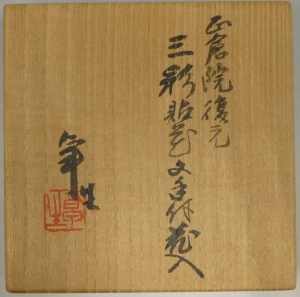 正倉院復元
三彩貼花文手付花入
年生